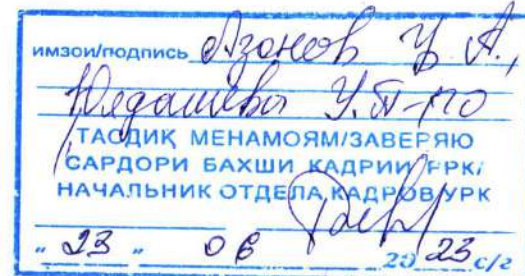 имзои/подпись Азонов У А.,
Юлдашева У.
ТАСДИҚ МЕНАМОЯМ/ЗАВЕРЯЮ
САРДОРИ БАХШИ КАДРИИ РРК/
НАЧАЛЬНИК ОТДЕЛА КАДРОВ УРК
" 23 " 06 2023 с/г